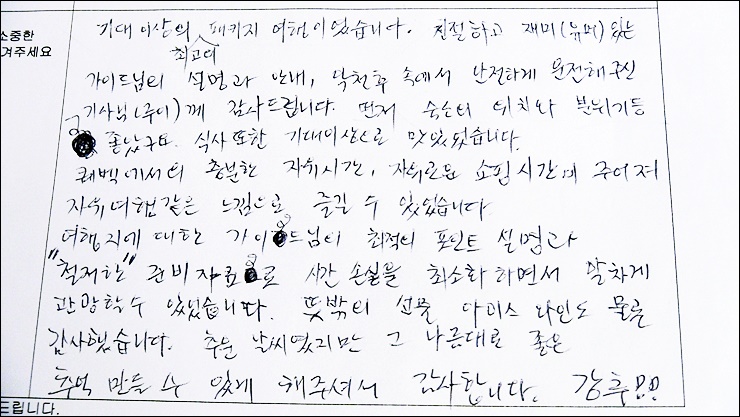 소중한
겨주세요
기대 이상의 최고의 패키지 여행이었습니다. 친절하고 재미(유머)있는
가이드님의 설명과 안내, 악천후 속에서 안전하게 운전해주신
기사님(주이)께 감사드립니다. 먼저 숙소의 위치와 분위기등
좋았구요. 식사 또한 기대이상으로 맛있었습니다.
퀘벡에서의 충분한 자유시간, 자유로운 쇼핑시간이 주어져
자유여행같은 느낌으로 즐길 수 있었습니다.
여행지에 대한 가이드님의 최적의 포인트 설명과
"철저한" 준비자료로 시간 손실을 최소화하면서 알차게
관광할수 있었습니다. 뜻밖의 선물 아이스 와인도 물론
감사했습니다. 추운 날씨였지만 그 나름대로 좋은
추억 만들 수 있게 해주셔서 감사합니다. 강추!!!
드립니다.